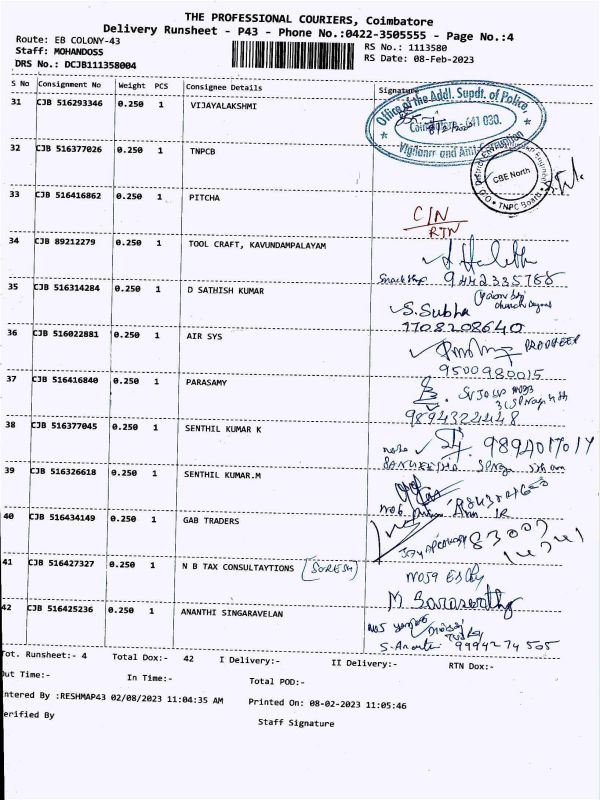 THE PROFESSIONAL COURIERS, Coimbatore
Delivery Runsheet - P43 - Phone No.:0422-3505555 - Page No.:4
Route: EB COLONY-43
RS No.: 1113580
Staff: MOHANDOSS
RS Date: 08-Feb-2023
DRS No.: DCJB111358004
S No Consignment No Weight PCS Consignee Details Signature
31 CJB 516293346 0.250 1 VIJAYALAKSHMI
Office of the Addl. Supdt. of Police,
Coimbatore - 641 030.
Vigilance and Anti Corruption
32 CJB 516377026 0.250 1 TNPCB
CBE North
TNPC Board
33 CJB 516416862 0.250 1 PITCHA
C/N
RTN
34 CJB 89212279 0.250 1 TOOL CRAFT, KAVUNDAMPALAYAM
9442335788
35 CJB 516314284 0.250 1 D SATHISH KUMAR
S. Subha
1708208640
36 CJB 516022881 0.250 1 AIR SYS
9500980015
37 CJB 516416840 0.250 1 PARASAMY
9894322448
38 CJB 516377045 0.250 1 SENTHIL KUMAR K
39 CJB 516326618 0.250 1 SENTHIL KUMAR.M
40 CJB 516434149 0.250 1 GAB TRADERS
41 CJB 516427327 0.250 1 N B TAX CONSULTAYTIONS (SURESH)
M. Saraswathy
42 CJB 516425236 0.250 1 ANANTHI SINGARAVELAN
9994274505
Tot. Runsheet:- 4 Total Dox:- 42 I Delivery:- II Delivery:- RTN Dox:-
Out Time:- In Time:- Total POD:-
ntered By :RESHMAP43 02/08/2023 11:04:35 AM Printed On: 08-02-2023 11:05:46
erified By Staff Signature